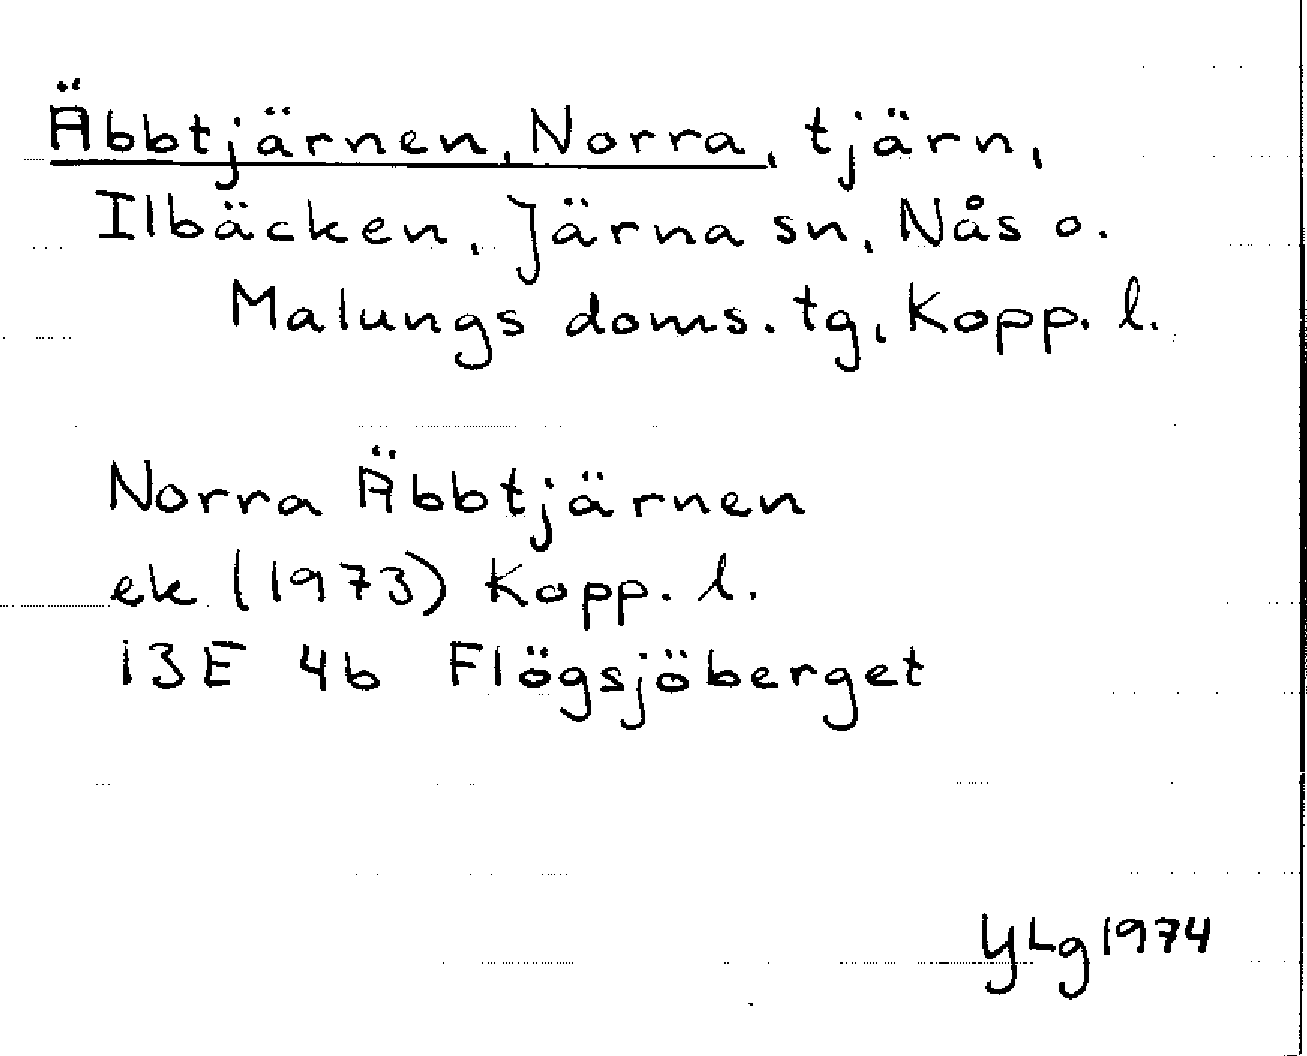 Äbbtjärnen, Norra, tjärn,
Ilbäcken, Järna sn, Nås o.
Malungs doms.tg, Kopp. l.
Norra Äbbtjärnen
ek (1973) Kopp. l.
13E 4b Flögsjöberget
YLg 1974